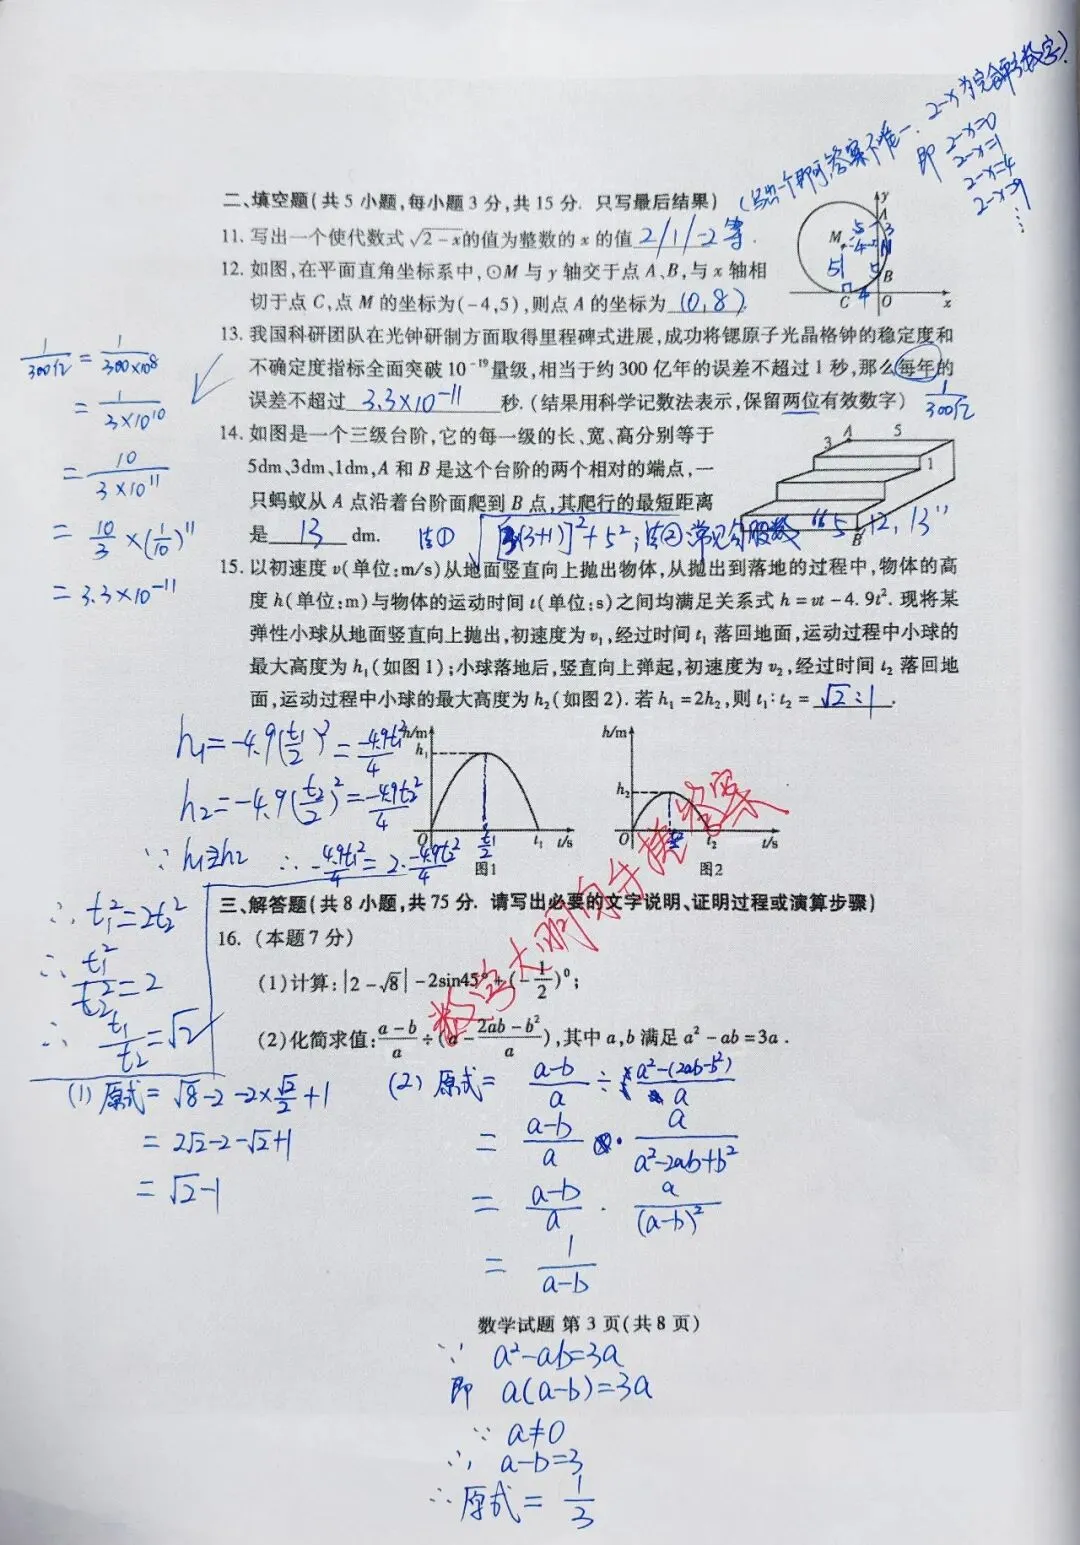 (写出一个即可,答案不唯一. 2-x为完全平方数字).
即 2-x=0
2-x=1
2-x=4
2-x=9
⋮
二、填空题(共 5 小题,每小题 3 分,共 15 分. 只写最后结果)
11. 写出一个使代数式√2-x的值为整数的 x 的值 2/1/-2等.
12. 如图,在平面直角坐标系中,⊙M 与 y 轴交于点 A、B,与 x 轴相
切于点 C,点 M 的坐标为(-4,5),则点 A 的坐标为 (0,8).
y
A
5
3
M
4
N
5
5
B
C
4
O
x
13. 我国科研团队在光钟研制方面取得里程碑式进展,成功将锶原子光晶格钟的稳定度和
不确定度指标全面突破 10⁻¹⁹量级,相当于约 300 亿年的误差不超过 1 秒,那么每年的
误差不超过 3.3×10⁻¹¹ 秒. (结果用科学记数法表示,保留两位有效数字)
1/300亿
1/300亿 = 1/300×10⁸
= 1/3×10¹⁰
= 10/3×10¹¹
= 10/3 ×(1/10)¹¹
= 3.3×10⁻¹¹
14. 如图是一个三级台阶,它的每一级的长、宽、高分别等于
5dm、3dm、1dm,A 和 B 是这个台阶的两个相对的端点,一
只蚂蚁从 A 点沿着台阶面爬到 B 点,其爬行的最短距离
是 13 dm. 法① √[3(3+1)]²+5²; 法②:常见勾股数 “5, 12, 13”
A
5
3
1
B
15. 以初速度 v(单位:m/s)从地面竖直向上抛出物体,从抛出到落地的过程中,物体的高
度 h(单位:m)与物体的运动时间 t(单位:s)之间均满足关系式 h=vt-4.9t². 现将某
弹性小球从地面竖直向上抛出,初速度为 v₁,经过时间 t₁ 落回地面,运动过程中小球的
最大高度为 h₁(如图 1);小球落地后,竖直向上弹起,初速度为 v₂,经过时间 t₂ 落回地
面,运动过程中小球的最大高度为 h₂(如图 2). 若 h₁=2h₂,则 t₁:t₂= √2:1.
h₁=-4.9(t₁/2)²=-4.9t₁²/4
h₂=-4.9(t₂/2)²=-4.9t₂²/4
∴ -4.9t₁²/4=2·-4.9t₂²/4
∴ t₁²=2t₂²
∴ t₁²/t₂²=2
∴ t₁/t₂=√2
h/m
h₁
O
t₁/2
t₁
t/s
图1
h/m
h₂
O
t₂
t/s
图2
数学大丽
三、解答题(共 8 小题,共 75 分. 请写出必要的文字说明、证明过程或演算步骤)
16. (本题 7 分)
(1)计算:|2-√8|-2sin45°+(-1/2)⁰;
(2)化简求值:a-b/a÷(a-2ab-b²/a),其中 a,b 满足 a²-ab=3a.
(1) 原式=√8-2-2×√2/2+1
=2√2-2-√2+1
=√2-1
(2) 原式= a-b/a ÷ a²-(2ab-b²)/a
= a-b/a · a/a²-2ab+b²
= a-b/a · a/(a-b)²
= 1/a-b
数学试题 第 3 页(共 8 页)
∵ a²-ab=3a
即 a(a-b)=3a
∵ a≠0
∴ a-b=3
∴原式= 1/3